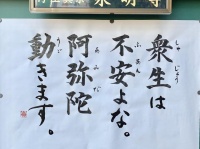 衆生は
不安よな。
阿弥陀
動きます。
しゅじょう
ふあん
あみだ
うご